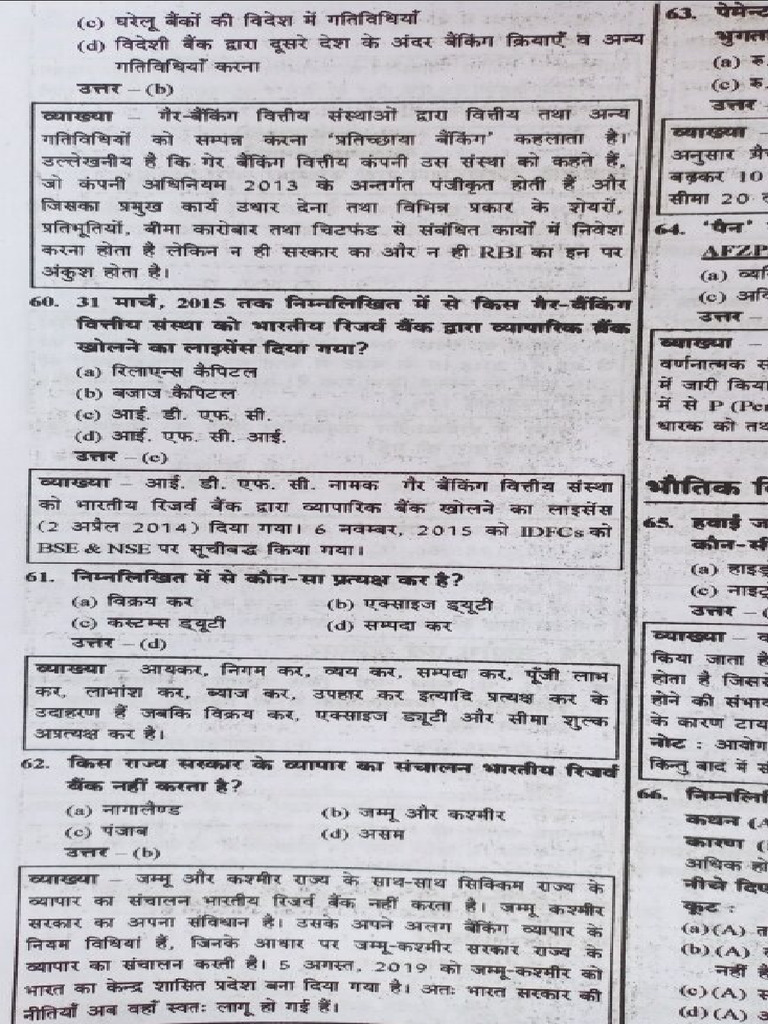 (c) घरेलू बैंकों की विदेश में गतिविधियाँ
(d) विदेशी बैंक द्वारा दूसरे देश के अंदर बैंकिंग क्रियाएँ व अन्य
गतिविधियाँ करना
उत्तर – (b)
व्याख्या – गैर-बैंकिंग वित्तीय संस्थाओं द्वारा वित्तीय तथा अन्य
गतिविधियों को सम्पन्न करना 'प्रतिच्छाया बैंकिंग' कहलाता है।
उल्लेखनीय है कि गेर बैंकिंग वित्तीय कंपनी उस संस्था को कहते हैं,
जो कंपनी अधिनियम 2013 के अन्तर्गत पंजीकृत होती हैं और
जिसका प्रमुख कार्य उधार देना तथा विभिन्न प्रकार के शेयरों,
प्रतिभूतियों, बीमा कारोबार तथा चिटफंड से संबंधित कार्यों में निवेश
करना होता है लेकिन न ही सरकार का और न ही RBI का इन पर
अंकुश होता है।
60. 31 मार्च, 2015 तक निम्नलिखित में से किस गैर-बैंकिंग
वित्तीय संस्था को भारतीय रिजर्व बैंक द्वारा व्यापारिक बैंक
खोलने का लाइसेंस दिया गया?
(a) रिलाएन्स कैपिटल
(b) बजाज कैपिटल
(c) आई. डी. एफ. सी.
(d) आई. एफ. सी. आई.
उत्तर – (c)
व्याख्या – आई. डी. एफ. सी. नामक गैर बैंकिंग वित्तीय संस्था
को भारतीय रिजर्व बैंक द्वारा व्यापारिक बैंक खोलने का लाइसेंस
(2 अप्रैल 2014) दिया गया। 6 नवम्बर, 2015 को IDFCs को
BSE & NSE पर सूचीबद्ध किया गया।
61. निम्नलिखित में से कौन-सा प्रत्यक्ष कर है?
(a) विक्रय कर (b) एक्साइज ड्यूटी
(c) कस्टम्स ड्यूटी (d) सम्पदा कर
उत्तर – (d)
व्याख्या – आयकर, निगम कर, व्यय कर, सम्पदा कर, पूँजी लाभ
कर, लाभांश कर, ब्याज कर, उपहार कर इत्यादि प्रत्यक्ष कर के
उदाहरण हैं जबकि विक्रय कर, एक्साइज ड्यूटी और सीमा शुल्क
अप्रत्यक्ष कर है।
62. किस राज्य सरकार के व्यापार का संचालन भारतीय रिजर्व
बैंक नहीं करता है?
(a) नागालैण्ड (b) जम्मू और कश्मीर
(c) पंजाब (d) असम
उत्तर – (b)
व्याख्या – जम्मू और कश्मीर राज्य के साथ-साथ सिक्किम राज्य के
व्यापार का संचालन भारतीय रिजर्व बैंक नहीं करता है। जम्मू कश्मीर
सरकार का अपना संविधान है। उसके अपने अलग बैंकिंग व्यापार के
नियम विधियां हैं, जिनके आधार पर जम्मू-कश्मीर सरकार राज्य के
व्यापार का संचालन करती है। 5 अगस्त, 2019 को जम्मू-कश्मीर को
भारत का केन्द्र शासित प्रदेश बना दिया गया है। अतः भारत सरकार की
नीतियाँ अब वहाँ स्वतः लागू हो गई हैं।
63. पेमेन्ट
भुगता
(a) रु.
(c) रु.
उत्तर
व्याख्या –
अनुसार
बढ़कर 10
सीमा 20
64. 'पैन'
AFZP
(a) व्यक्ति
(c)
उत्तर –
व्याख्या –
वर्णनात्मक
में जारी किया
में से P (Per
धारक को तथ
भौतिक
65. हवाई ज
कौन-सी
(a) हाइड्र
(c) नाइट्र
उत्तर – (
व्याख्या –
किया जाता है
होता है जिसस
होने की संभाव
के कारण टाय
नोट : आयोग
किन्तु बाद में
66. निम्नलि
कथन (A
कारण (
अधिक हो
नीचे दिए
कूट :
(a) (A)
(b) (A)
नहीं है
(c) (A)
(d) (A)